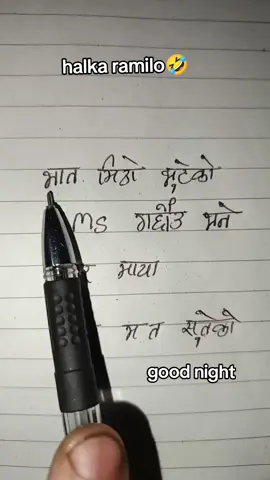 halka ramilo🤣
भात मिठो भुटेको
MS गर्छौउ भने
माया
म त सुतेको
good night